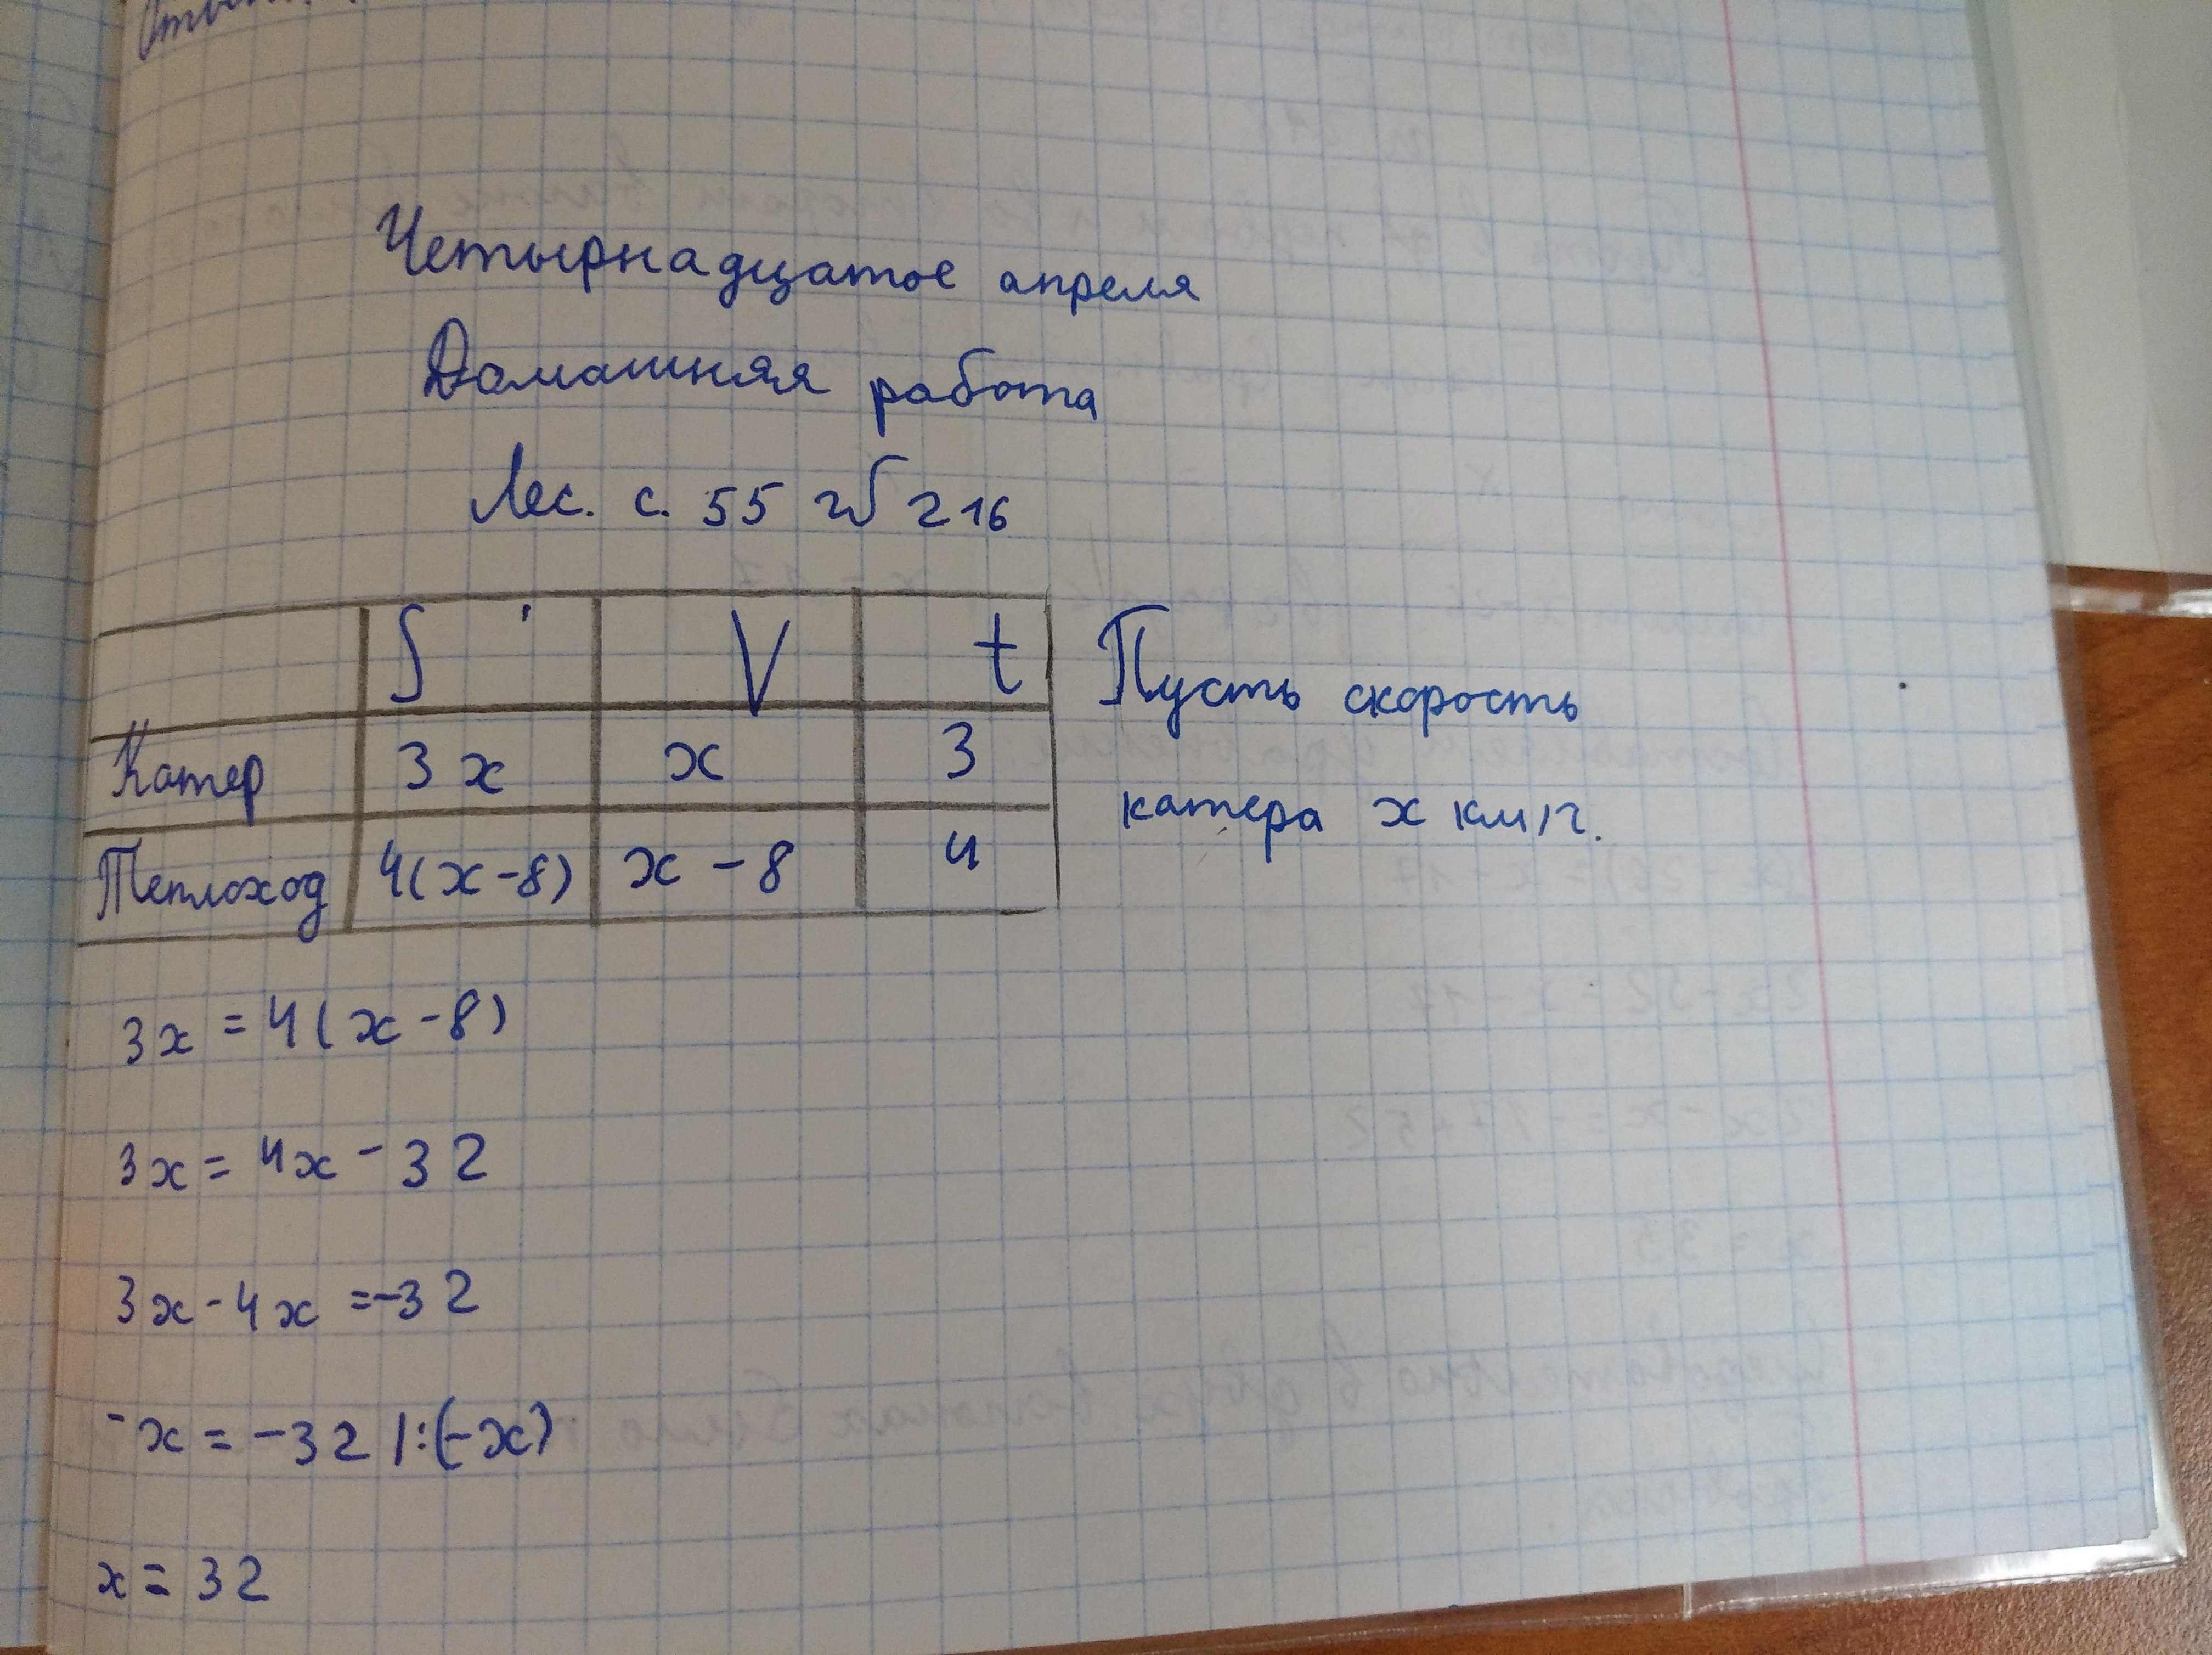 Четырнадцатое апреля
Домашняя работа
Лес. с. 55 № 216
S V t
Катер 3x x 3
Теплоход 4(x-8) x-8 4
Пусть скорость
катера x км/г.
3x = 4(x-8)
3x = 4x - 32
3x - 4x = -32
-x = -32 |:(-x)
x = 32